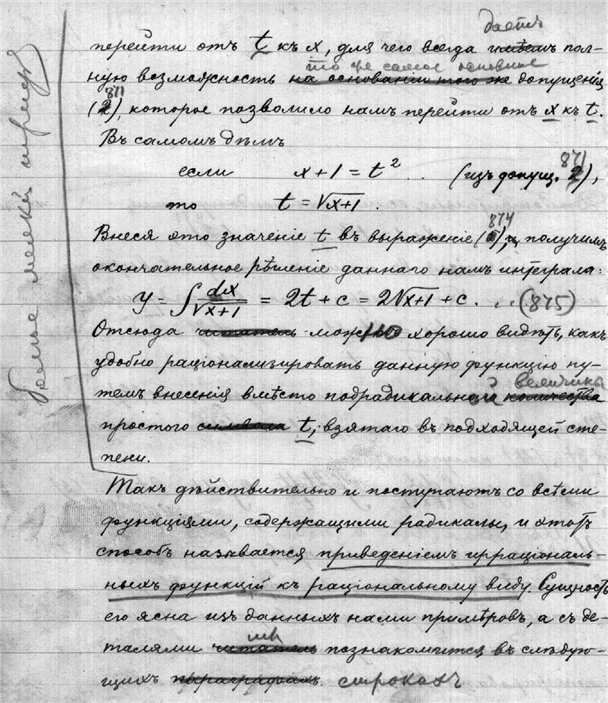 дается
перейти отъ t къ x, для чего всегда имѣемъ пол-
то же самое основное
ную возможность на основаніи того же допущенія
871
(2), которое позволило намъ перейти отъ x къ t.
Въ самомъ дѣлѣ
871
если x + 1 = t² .. (изъ допущ. 2),
то t = √x+1.
874
Внеся это значеніе t въ выраженіе ( ), получимъ
окончательное рѣшеніе даннаго намъ интеграла:
y = ∫ dx/√x+1 = 2t + c = 2√x+1 + c. .. (875)
Отсюда читатель можно хорошо видѣть, какъ
удобно раціонализировать данную функцію пу-
величины
темъ внесенія вмѣсто подрадикальной количества
простого символа t, взятаго въ подходящей сте-
пени.
Такъ дѣйствительно и поступаютъ со всѣми
функціями, содержащими радикалы, и этотъ
способъ называется приведеніемъ ирраціональ-
ныхъ функцій къ раціональному виду. Сущность
его ясна изъ данныхъ нами примѣровъ, а съ де-
мы
талями читатель познакомится въ слѣдую-
щихъ параграфахъ строкахъ
Болѣе мелкій шрифтъ